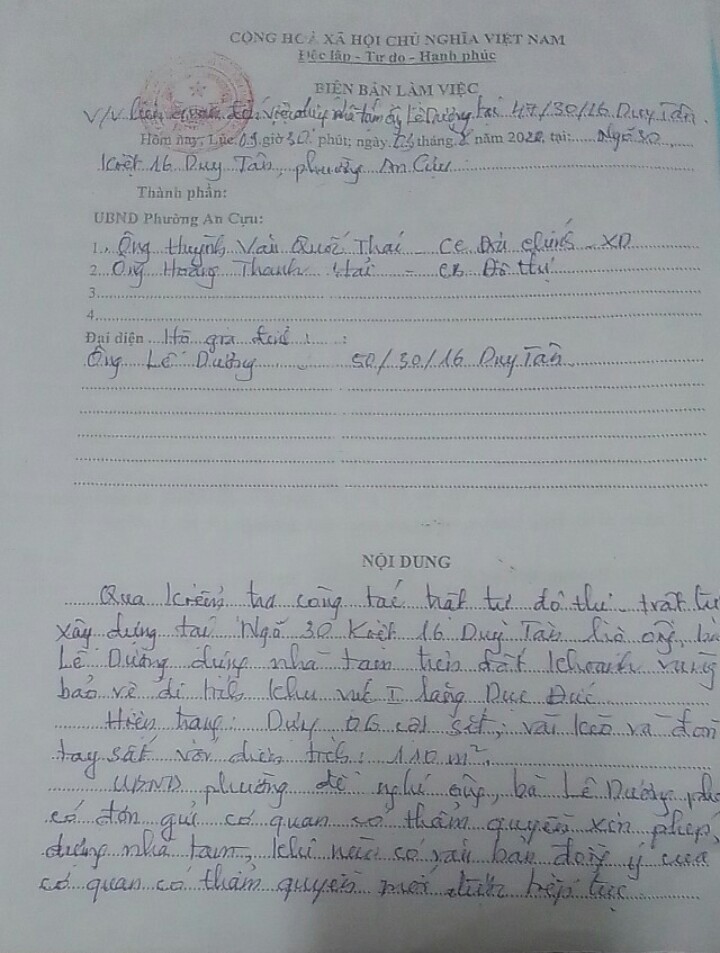 CỘNG HOÀ XÃ HỘI CHỦ NGHĨA VIỆT NAM
Độc lập - Tự do - Hạnh phúc
BIÊN BẢN LÀM VIỆC
V/v liên quan đến việc dựng nhà tạm Lê Dương tại 47/30/16 Duy Tân.
Hôm nay, Lúc 09 giờ 30 phút; ngày tháng năm tại: Ngõ 30
Kiệt 16 Duy Tân, phường An Cựu
Thành phần:
UBND Phường An Cựu:
1. Ông Huỳnh Văn Quốc Thái - CC Địa chính - XD
2. Ông Hoàng Thanh Hải - CB Đô thị
3
4
Đại diện Hộ gia đình :
Ông Lê Dương 50/30/16 Duy Tân
NỘI DUNG
Qua kiểm tra công tác trật tự đô thị - trật tự
xây dựng tại Ngõ 30 Kiệt 16 Duy Tân hộ ông, bà
Lê Dương dựng nhà tạm trên đất khoanh vùng
bảo vệ di tích khu vực I lăng Dục Đức
Hiện trạng: Dựng 06 cột sắt, vài kèo và đòn
tay sắt với diện tích: 110 m².
UBND phường đề nghị ông, bà Lê Dương
có đơn gửi cơ quan có thẩm quyền xin phép
dựng nhà tạm, khi nào có văn bản đồng ý của
cơ quan có thẩm quyền mới tiếp tục